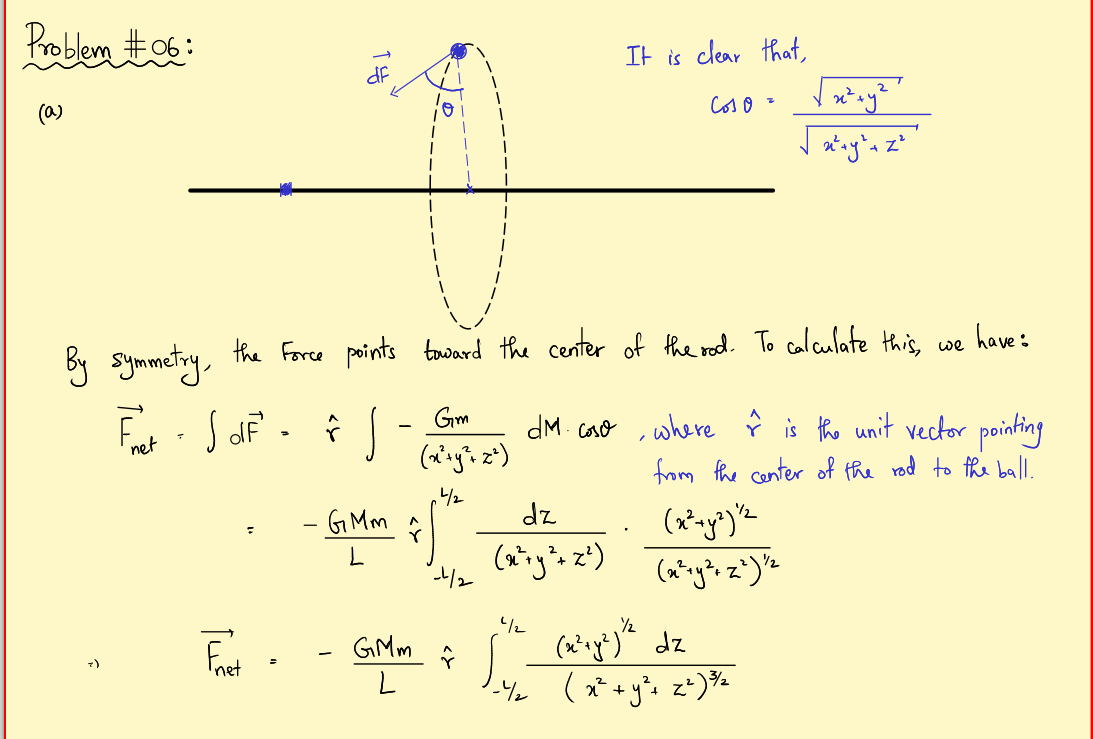 Problem #06:
(a)
dF⃗
θ
It is clear that,
cos θ = √(x²+y²) / √(x²+y²+z²)
By symmetry, the Force points toward the center of the rod. To calculate this, we have:
F⃗net = ∫ dF⃗ = r̂ ∫ - Gm/(x²+y²+z²) dM · cosθ , where r̂ is the unit vector pointing
from the center of the rod to the ball.
= - GMm/L r̂ ∫_{-L/2}^{L/2} dz/(x²+y²+z²) · (x²+y²)^{1/2}/(x²+y²+z²)^{1/2}
⇒ F⃗net = - GMm/L r̂ ∫_{-L/2}^{L/2} (x²+y²)^{1/2} dz/(x²+y²+z²)^{3/2}